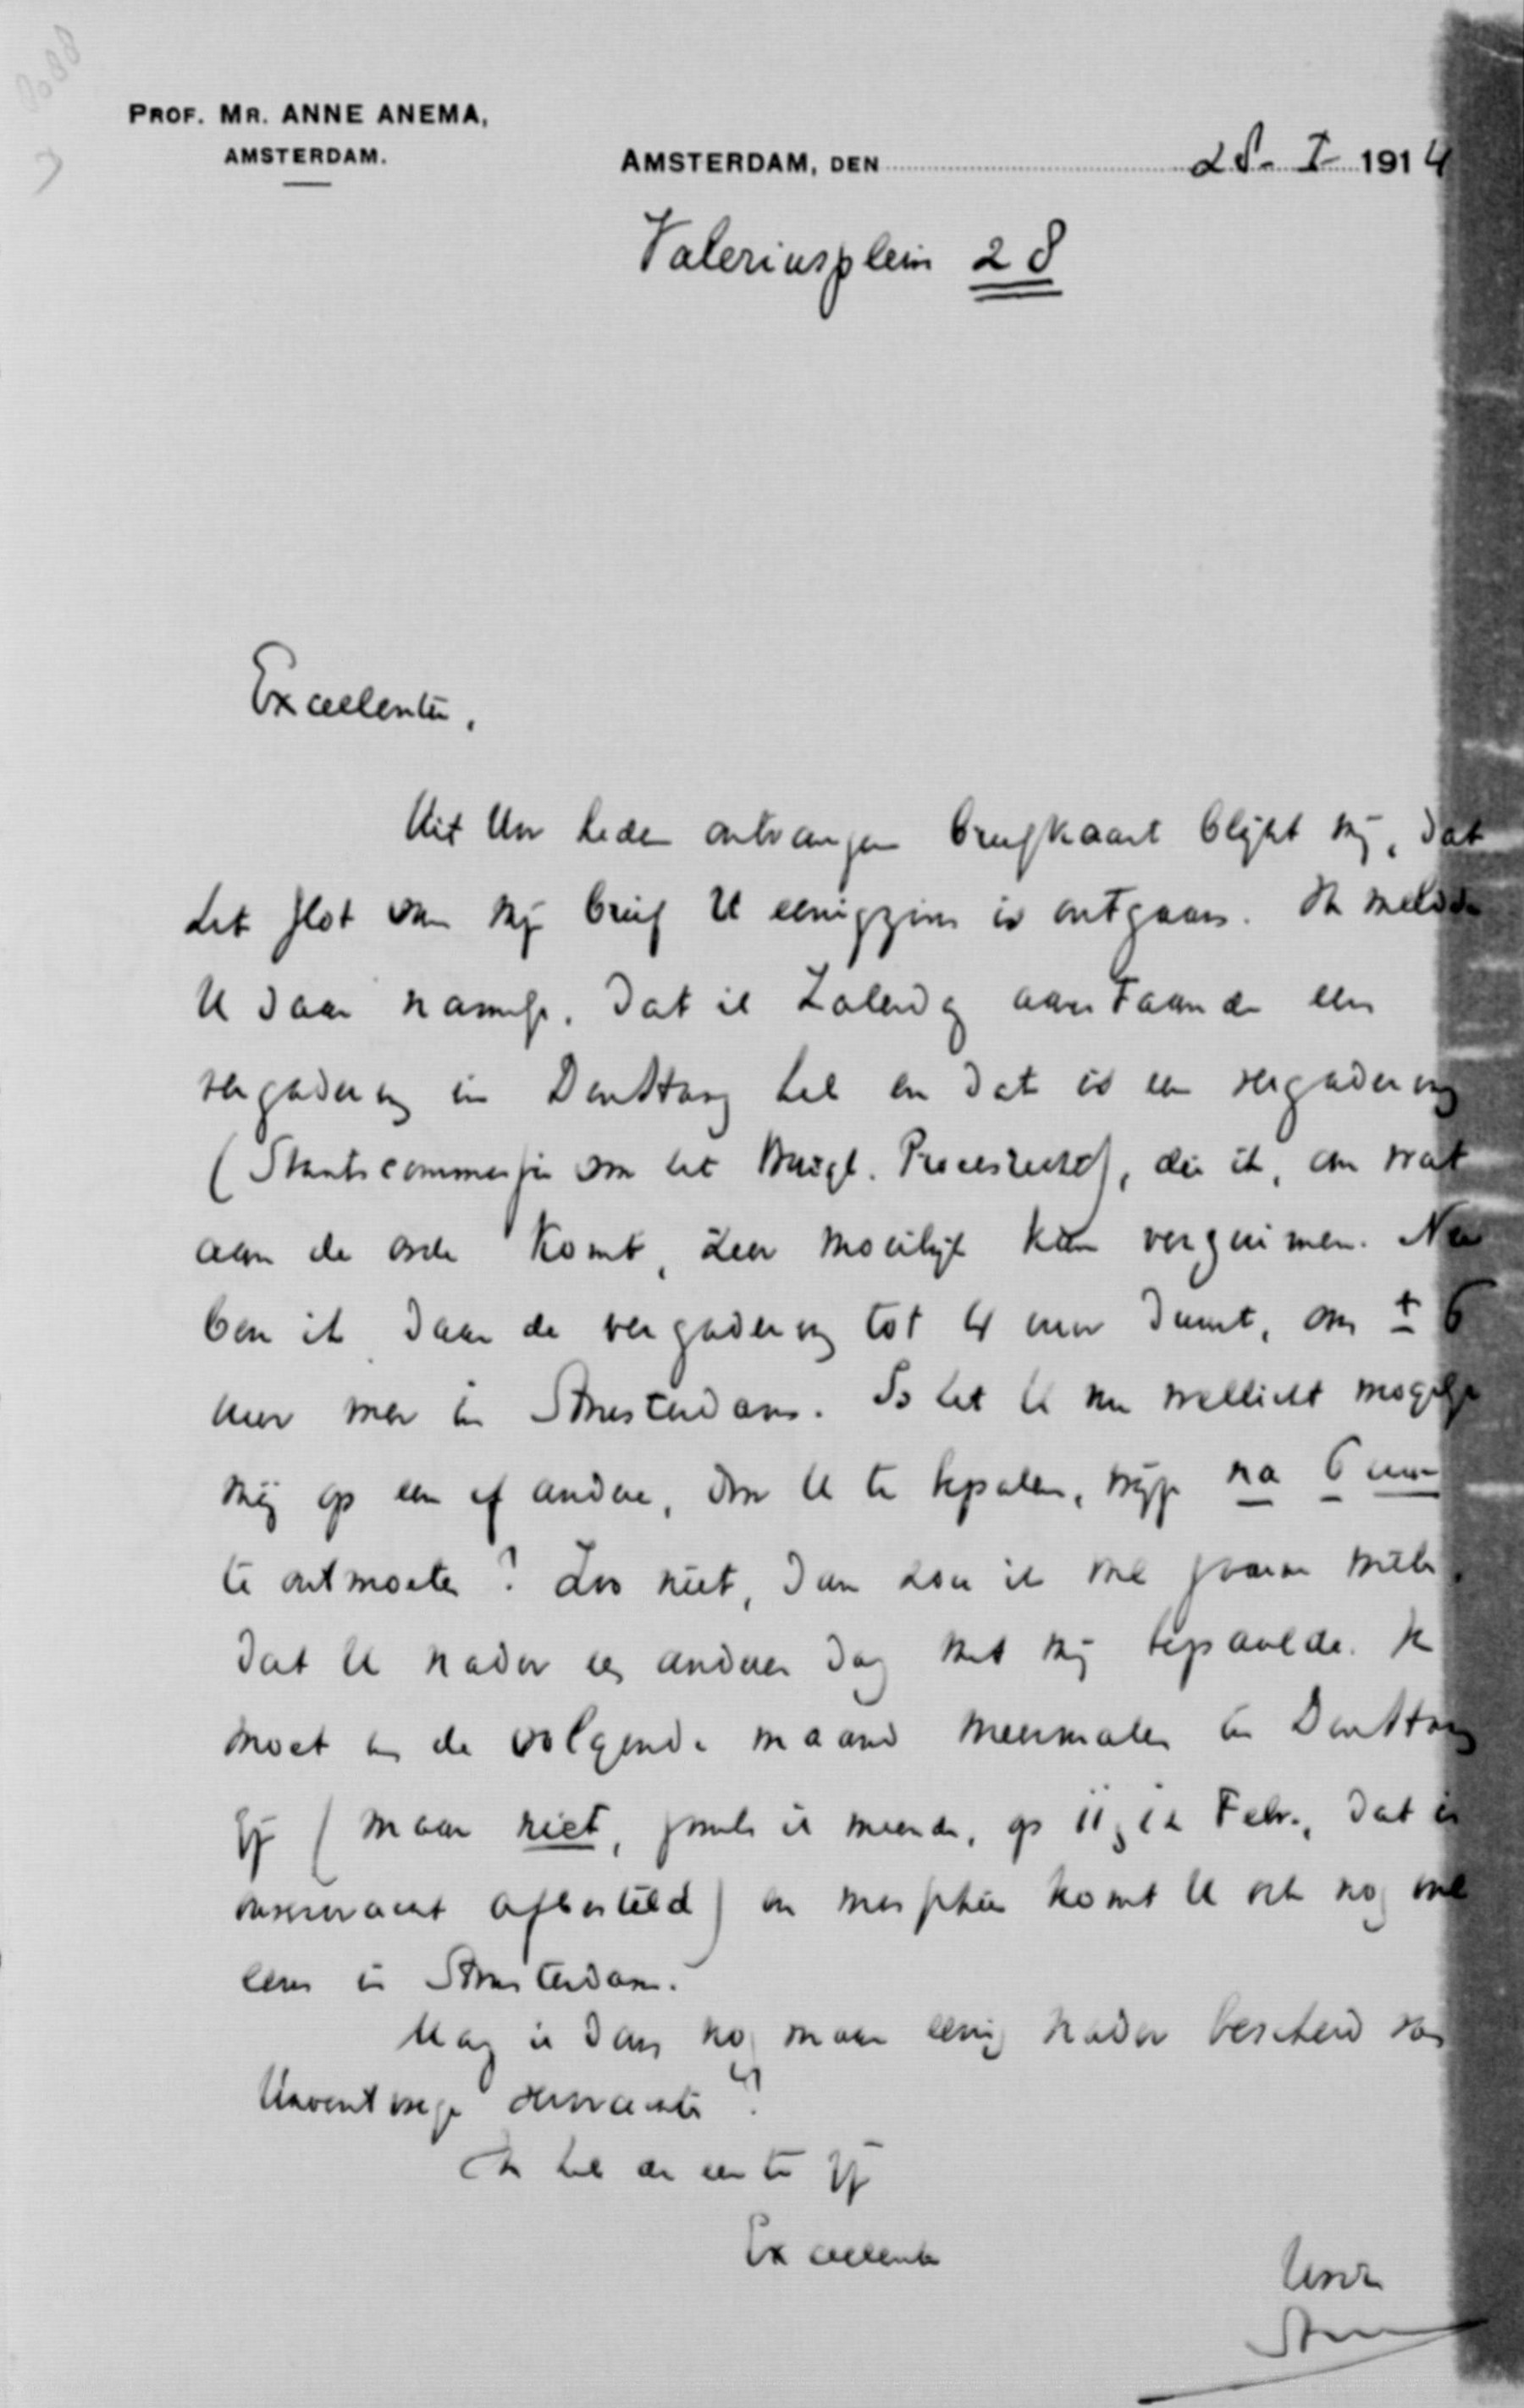 PROF. MR. ANNE ANEMA,
AMSTERDAM.
AMSTERDAM, DEN 28-I-1914
Valeriusplein 28
Excellentie,
Uit Uw heden ontvangen briefkaart blijkt mij, dat
het slot van mijn brief U eenigszins is ontgaan. Ik meldde
U daar namelijk, dat ik Zaterdag aanstaande een
vergadering in Den Haag heb en dat is een vergadering
(Staatscommissie voor het Burgl. Procesrecht), die ik, om wat
aan de orde komt, zeer moeilijk kan verzuimen. Nu
ben ik daar de vergadering tot 4 uur duurt, om ± 6
uur weer in Amsterdam. Is het U nu wellicht mogelijk
mij op een of andere, door U te bepalen, wijze na 6 uur
te ontmoeten? Zoo niet, dan zou ik wel gaarne willen,
dat U nader een andere dag met mij bepaalde. Ik
moet in de volgende maand meermalen in Den Haag
zijn (maar niet, zooals ik meende, op 11 en 12 Febr., dat is
onverwacht afbesteld) en misschien komt U ook nog wel
eens in Amsterdam.
Mag ik dan nog maar eenig nader bescheid van
Uwentwege verwachten?
Ik heb de eer te zijn
Excellentie
Uw